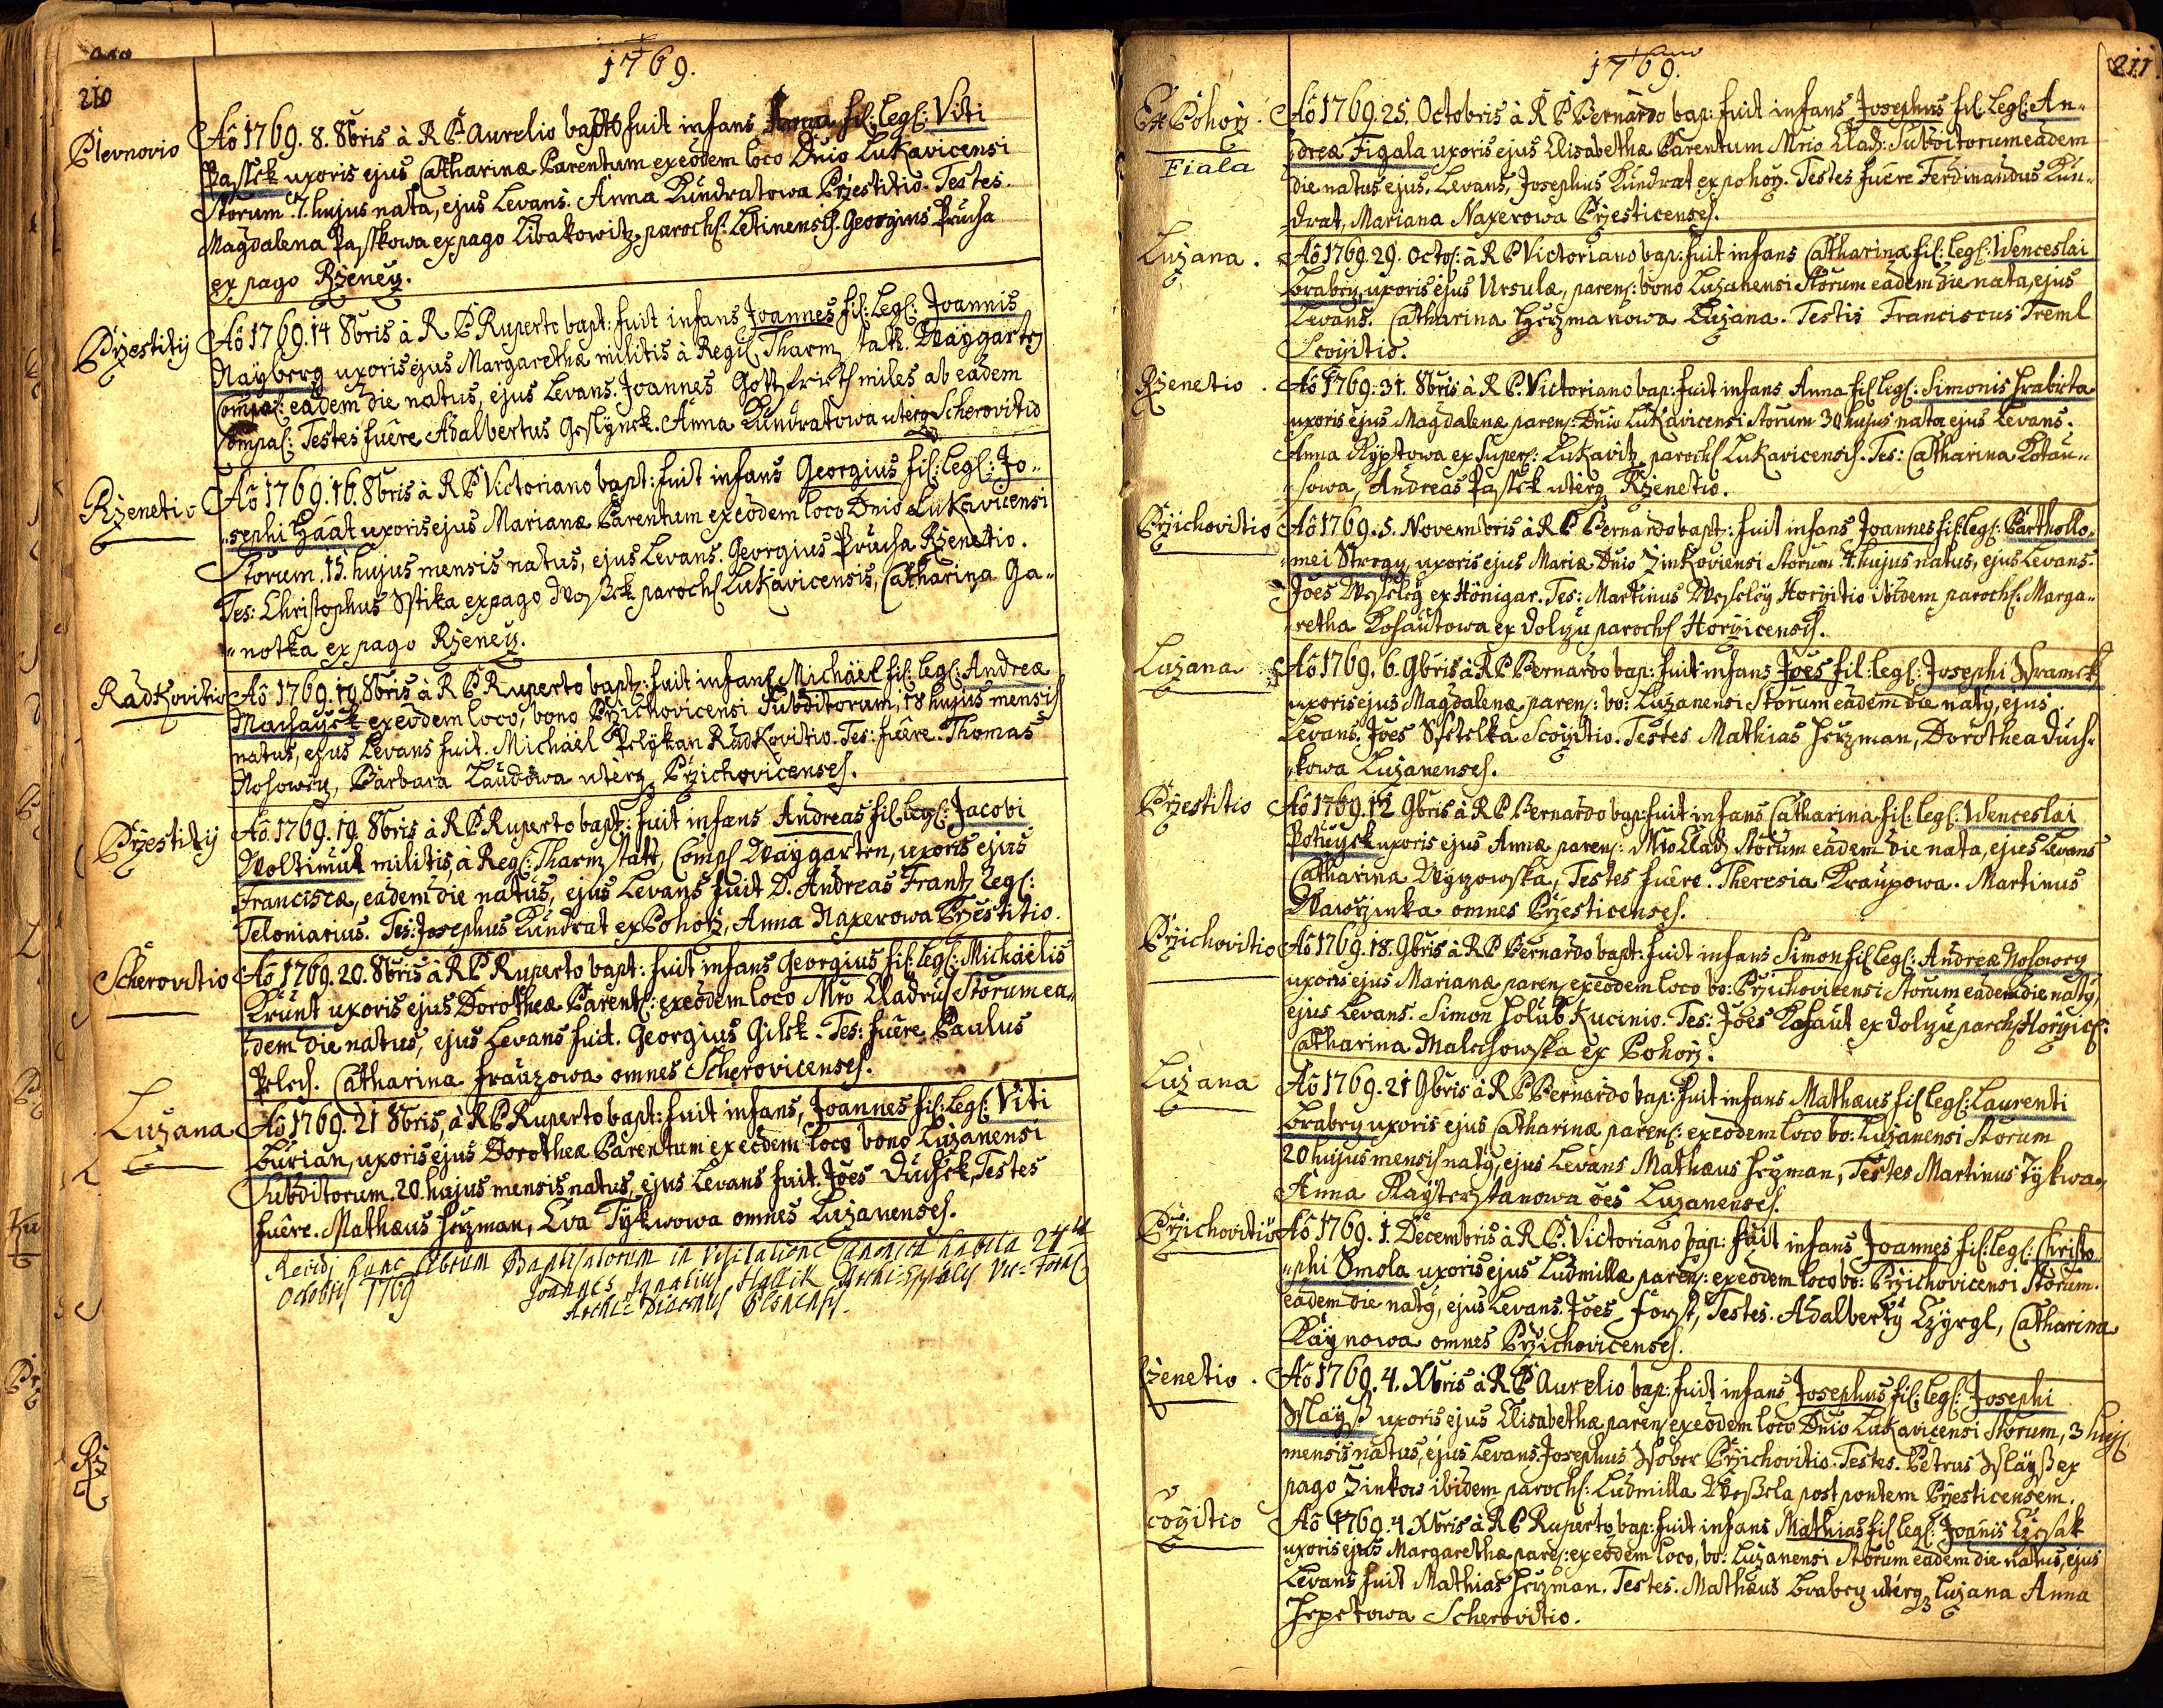 210
1769.
Plevnovio
Aô 1769. 8. 8bris à R P Aurelio bapt: fuit infans Anna fil: leg: Viti
Passek uxoris ejus Catharinæ Parentum ex eodem loco Dnio Lukavicensi
Storum. 7. hujus nata, ejus Levans. Anna Kundratowa Pržestitio. Testes.
Magdalena Passkowa ex pago Libakowitz, paroch: Letinensis. Georgius Prucha
ex pago Rženecz.
Pržestitij
Aô 1769. 14 8bris à R P Ruperto bapt: fuit infans Joannes fil: leg: Joannis
Nayberg uxoris ejus Margarethæ militis à Regi: Tharmstatt. Waygarten
Compa: eadem die natus, ejus Levans. Joannes Gottfrieth miles ab eadem
Compa: Testes fuêre Adalbertus Geslynek. Anna Kundratowa uterq Scherovitio
Rženetio
Aô 1769. 16. 8bris à R P Victoriano bapt: fuit infans Georgius fil: leg: Jo„
„sephi Haat uxoris ejus Marianæ Parentum ex eodem loco Dnio Lukavicensi
Storum. 15. hujus mensis natus, ejus Levans. Georgius Prucha Rženetio.
Tes: Christophus Sstika ex pago Woßek paroch: Lukavicensis, Catharina Ga„
„notka ex pago Rženecz.
Radkovitio
Aô 1769. 19. 8bris à R P Ruperto bapt: fuit infans Michäel fil: leg: Andreæ
Machaczek ex eodem loco, bono Pržichovicensi Subditorum, 18 hujus mensis
natus, ejus Levans fuit. Michäel Pelykan Radkovitio. Tes: fuêre. Thomas
Nosowcy, Barbara Laudowa uterq Pržichovicenses.
Pržestitij
Aô. 1769. 19. 8bris à R P Ruperto bapt: fuit infans Andreas fil: leg: Jacobi
Woltimut militis, à Reg: Tharmstatt, Comp: Waygarten, uxoris ejus
Franciscæ, eadem die natus, ejus Levans fuit D. Andreas Frantz leg:
Teloniarius. Tes: Josephus Kundrat ex Pohorž, Anna Naxerowa Pržestitio.
Scherovitio
Aô 1769. 20. 8bris à R P Ruperto bapt: fuit infans Georgius fil: leg: Michäelis
Krunt uxoris ejus Dorotheæ Parent: ex eodem loco Mrô Cladrus Storum ea„
„dem die natus, ejus Levans fuit. Georgius Gilek. Tes: fuêre Paulus
Pelech. Catharina Frauzowa omnes Scherovicenses.
Lužana
Aô 1769. 21 8bris, à R P Ruperto bapt: fuit infans, Joannes fil: leg: Viti
Burian, uxoris ejus Dorotheæ Parentum ex eodem loco bono Lužanensi
Subditorum. 20. hujus mensis natus, ejus Levans fuit. Jôes Duchek, Testes
fuêre. Mathæus Heržman, Eva Tykwowa omnes Lužanenses.
Revidi hunc librum Baptisatorum in Visitatione Canonica habita 24ta
Octobris 1769 Joannes Ignatius Hassik Archi-Eppalis Vic: Foral
Archi-Diaconus Plsnensis.
1769.
211
Ex Pohorž.
Fiala
Aô 1769. 25. Octobris à R P Bernardo bap: fuit infans Josephus fil: leg: An„
„dreæ Figala uxoris ejus Elisabethæ Parentum Mrio Clad: Subditorum eadem
die natus ejus, Levans, Josephus Kundrat ex pohorž. Testes fuêre Ferdinandus Kun„
„drat, Mariana Naxerowa Pržesticenses.
Lužana.
Aô 1769. 29. Octo: à R P Victoriano bap: fuit infans Catharina fil: leg: Wenceslai
Brabecz, uxoris ejus Ursulæ, paren: bono Lužanensi Storum eadem die nata, ejus
Levans. Catharina Heržmanowa Lužana. Testis Franciscus Treml
Scoyitio.
Rženetio.
Aô 1769. 31. 8bris à R P. Victoriano bap: fuit infans Anna fil: leg: Simonis Hrabieta
uxoris ejus Magdalenæ paren: Dnio Lukavicensi Storum 30 hujus nata ejus Levans.
Anna Ryptowa ex Super: Lukavitz paroch: Lukavicensis. Tes: Catharina Kotau„
„sowa, Andreas Passek uterq Rženetio.
Pržichovitio
Aô 1769. 5. Novembris à R P Bernardo bapt: fuit infans Joannes fil: leg: Barthollo„
„mei Strogy, uxoris ejus Mariæ Dnio Zinkoviensi Storum 4. hujus natus, ejus Levans.
Jôes Wesseley ex Hönigar. Tes: Martinus Wesseley Horzitio ibidem paroch: Marga„
„retha Kohautowa ex dolzu paroch: Horžicensis.
Lužana
Aô 1769. 6. 9bris à R P Bernardo bap: fuit infans Jôes fil: leg: Josephi Sramek
uxoris ejus Magdalenæ paren: bo: Lužanensi Storum eadem die natq, ejus
Levans. Jôes Sstelka Scoyitio. Testes Mathias Heržman, Dorothea Duch„
„kowa Lužanenses.
Pržestitio
Aô 1769. 12 9bris à R P Bernardo bap: fuit infans Catharina fil: leg: Wenceslai
Potuczek uxoris ejus Annæ paren: Mrio Clad: Storum eadem die nata, ejus Levans
Catharina Wyzowska, Testes fuêre. Theresia Kraupowa. Martinus
Wawrzinka omnes Pržesticenses.
Pržichovitio
Aô 1769. 18. 9bris à R P Bernardo bapt: fuit infans Simon fil: leg: Andreæ Nosowcy
uxoris ejus Marianæ paren: ex eodem loco bo: Pržichovicensi Storum eadem die natq,
ejus Levans. Simon Holub Kucinio. Tes: Jôes Kohaut ex dolzu paroch: Horžic:
Catharina Malechowska ex Pohorž.
Lužana
Aô 1769. 21 9bris à R P Bernardo bap: fuit infans Mathæus fil: leg: Laurenti
Brabecz uxoris ejus Catharinæ paren: ex eodem loco bo: Lužanensi Storum
20 hujus mensis natq, ejus Levans Mathæus Heržman, Testes Martinus Tykwa,
Anna Kayterstanowa ôes Lužanenses.
Pržichovitio
Aô 1769. 1. Decembris à R P. Victoriano bap: fuit infans Joannes fil: leg: Christo„
„phi Smola uxoris ejus Ludmillæ paren: ex eodem loco bo: Pržichovicensi Storum.
eadem die natq, ejus Levans. Jôes Forst, Testes. Adalbertq Czyrgl, Catharina
Kaynowa omnes Pržichovicenses.
Rženetio.
Aô 1769. 4. Xbris à R P Aurelio bap: fuit infans Josephus fil: leg: Josephi
Slayß uxoris ejus Elisabethæ paren: ex eodem loco Dnio Lukavicensi Storum, 3 huj:
mensis natus, ejus Levans. Josephus Sober Pržichovitio. Testes. Petrus Slayß ex
pago Zinkow ibidem paroch: Ludmilla Weßela post pontem Pržesticensem.
Scoyitio
Aô 1769. 4 Xbris à R P Ruperto bap: fuit infans Mathias fil: leg: Joanis Czesak
uxoris ejus Margarethæ paren: ex eodem loco, bo: Lužanensi Storum eadem die natus, ejus
Levans fuit Mathias Heržman. Testes. Mathæus Brabecz uterq Lužana Anna
Hepetowa Scherovitio.